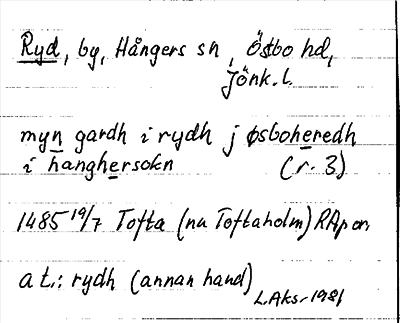 Ryd, by, Hångers sn, Östbo hd,
Jönk. l.
myn gardh i rydh j øsboheredh
i hanghersokn (r. 3)
1485 19/7 Tofta (nu Toftaholm) RAp or.
a t.: rydh (annan hand)
LAks. 1981